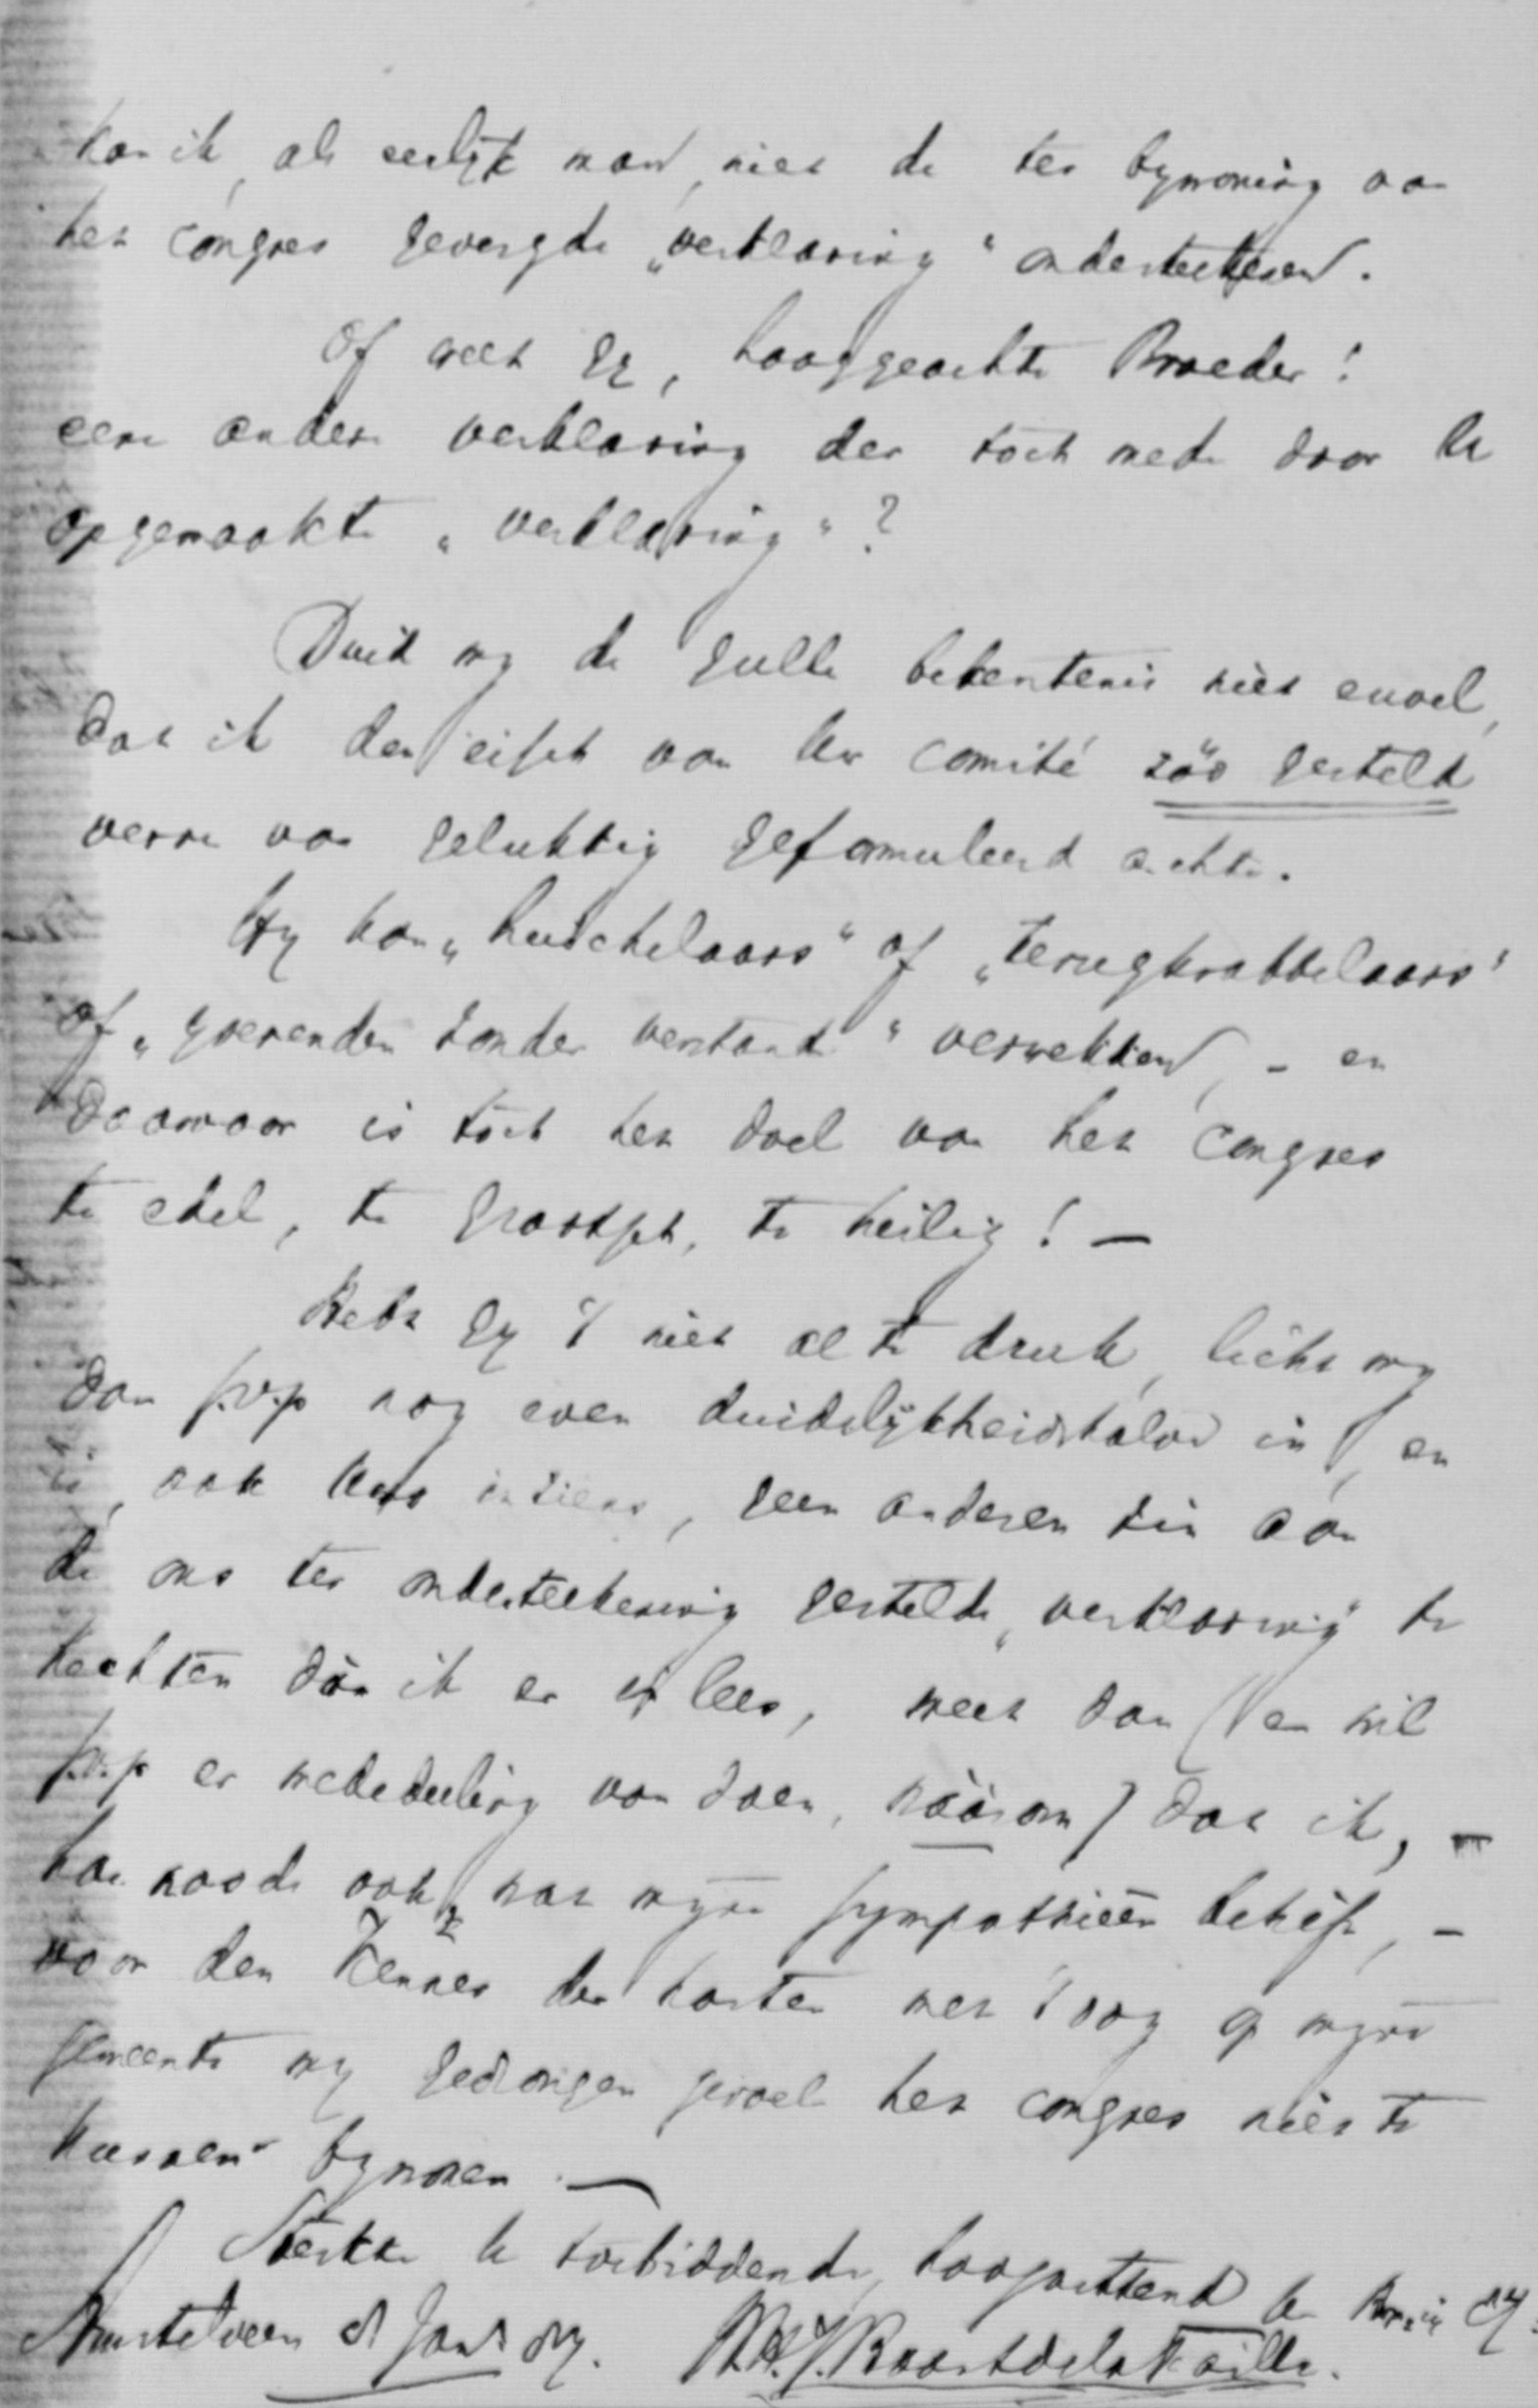 kan ik, als eerlijk man, niet de ter bijwoning van
het congres gevergde „verklaring" onderteekenen.
Of weet Gij, hooggeachte Broeder!
eene andere verklaring der toch mede door Uw
opgemaakte „verklaring"?
Duid mij de gulle bekentenis niet euvel,
dat ik den eisch van Uw comité zóó gesteld
verre van gelukkig geformuleerd achte.
Hij kan „huichelaars" of „terugkrabbelaars"
of „ijverenden zonder verstand" verwekken, - en
daarvoor is toch het doel van het congres
te edel, te grootsch, te heilig! —
Hebt Gij 't niet al te druk, licht mij
dan s.v.p. nog even duidelijkheidshalve in, en
is, ook Uws inziens, geen anderen zin aan
de ons ter onderteekening gestelde „verklaring" te
hechten dan ik er in lees, weet dan (en wil
s.v.p. er mededeeling van doen, wáárom) dat ik, -
hoe noode ook, wat mijne sympathieën betreft, -
voor den Kenner der harten met 't oog op mijne
gemeente mij gedrongen gevoel het congres niet te
kunnen bijwonen. —
Sterkte U toebiddende, hoogachtend Uw Br. in
Amstelveen 8 Jan. 87. R.H.J. Baart de la Faille.